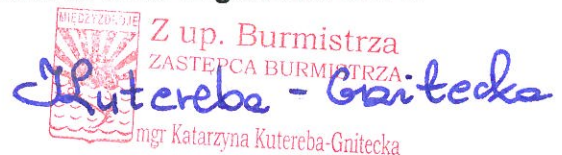 MIĘDZYZDROJE
Z up. Burmistrza
ZASTĘPCA BURMISTRZA
Kutereba - Gnitecka
mgr Katarzyna Kutereba-Gnitecka